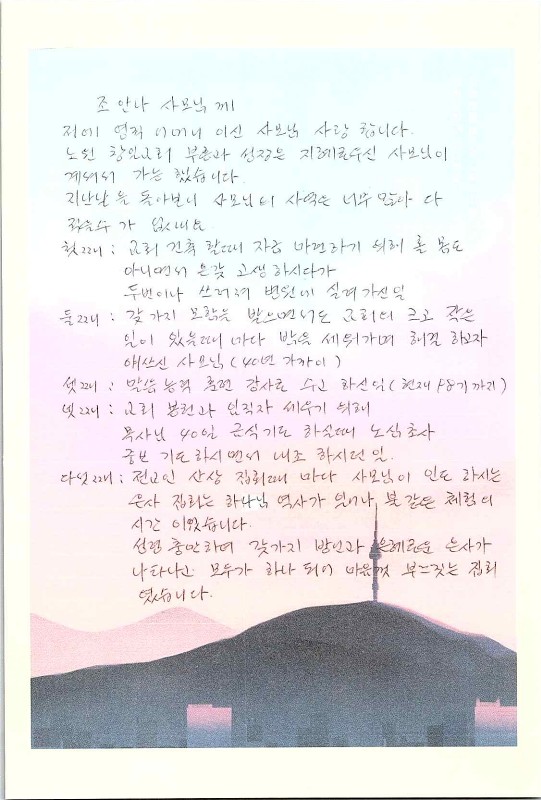 조 안나 사모님 께
저에 영적 어머니 이신 사모님 사랑 합니다.
노원 창일교회 부흥과 성장은 지혜로우신 사모님이
계셔서 가능 했습니다.
지난날 을 돌아보니 사모님 에 사역은 너무 많아 다
적을수 가 없네요
첫째 : 교회 건축 할때 자금 마련하기 위해 홀 몸도
아니면서 온갖 고생 하시다가
두번이나 쓰러져 병원에 실려 가신 일
둘째 : 갖가지 모함을 받으면서도 교회의 크고 작은
일이 있을때 마다 밤을 세워가며 해결 하고자
애쓰신 사모님 (40년 가까이)
셋째 : 말씀 능력 훈련 강사로 수고 하신일 (현재 98기 까지)
넷째 : 교회 본현과 일직자 세우기 위해
목사님 40일 금식기도 하실때 노심초사
중보 기도 하시면서 내조 하시던 일.
다섯째 : 전교인 산상 집회때 마다 사모님이 인도 하시는
은사 집회는 하나님 역사가 일어나 불같은 체험의
시간 이었습니다.
성령 충만하여 갖가지 방언과 은혜로운 은사가
나타나고 모두가 하나 되어 마음껏 부르짖는 집회
였습니다.